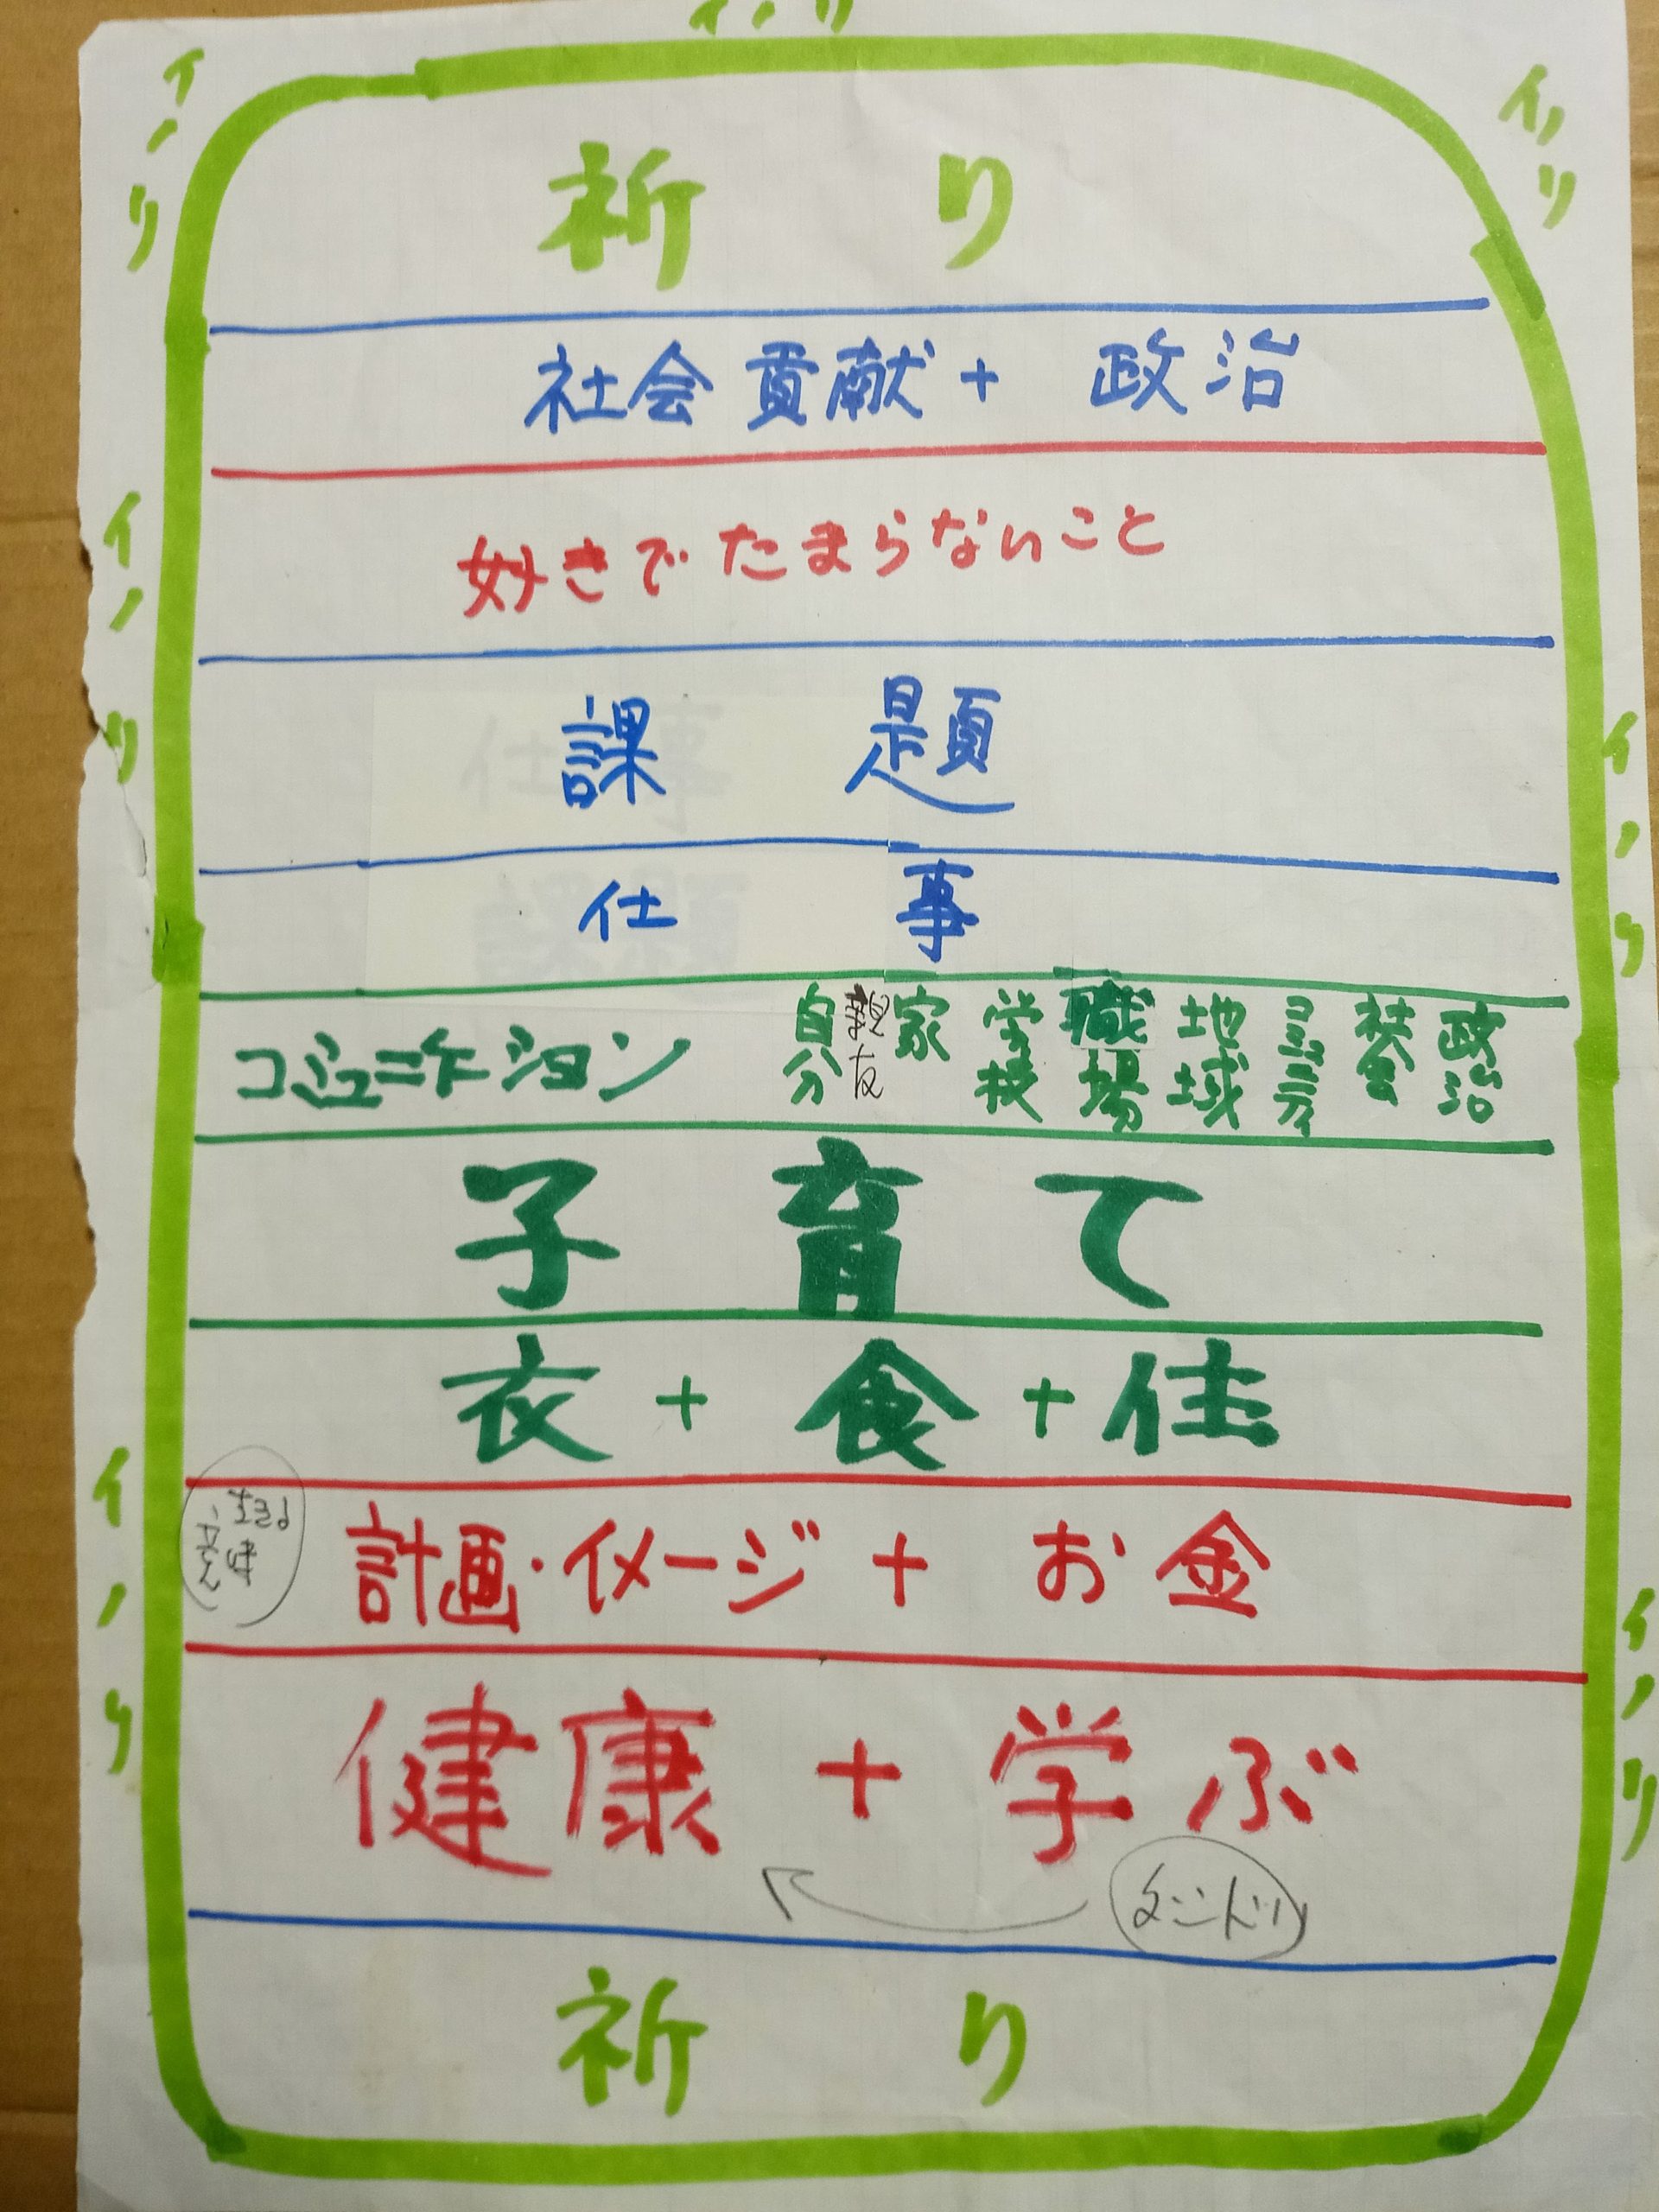 イノリ
イノリ
イノリ
祈り
社会貢献+政治
好きでたまらないこと
イノリ
課題
イノリ
仕事
コミュニケーション 自分 親友 家 学校 職場 地域 コミュニティ 社会 政治
子育て
衣+食+住
イノリ
計画・イメージ+お金
イノリ
健康+学ぶ
祈り